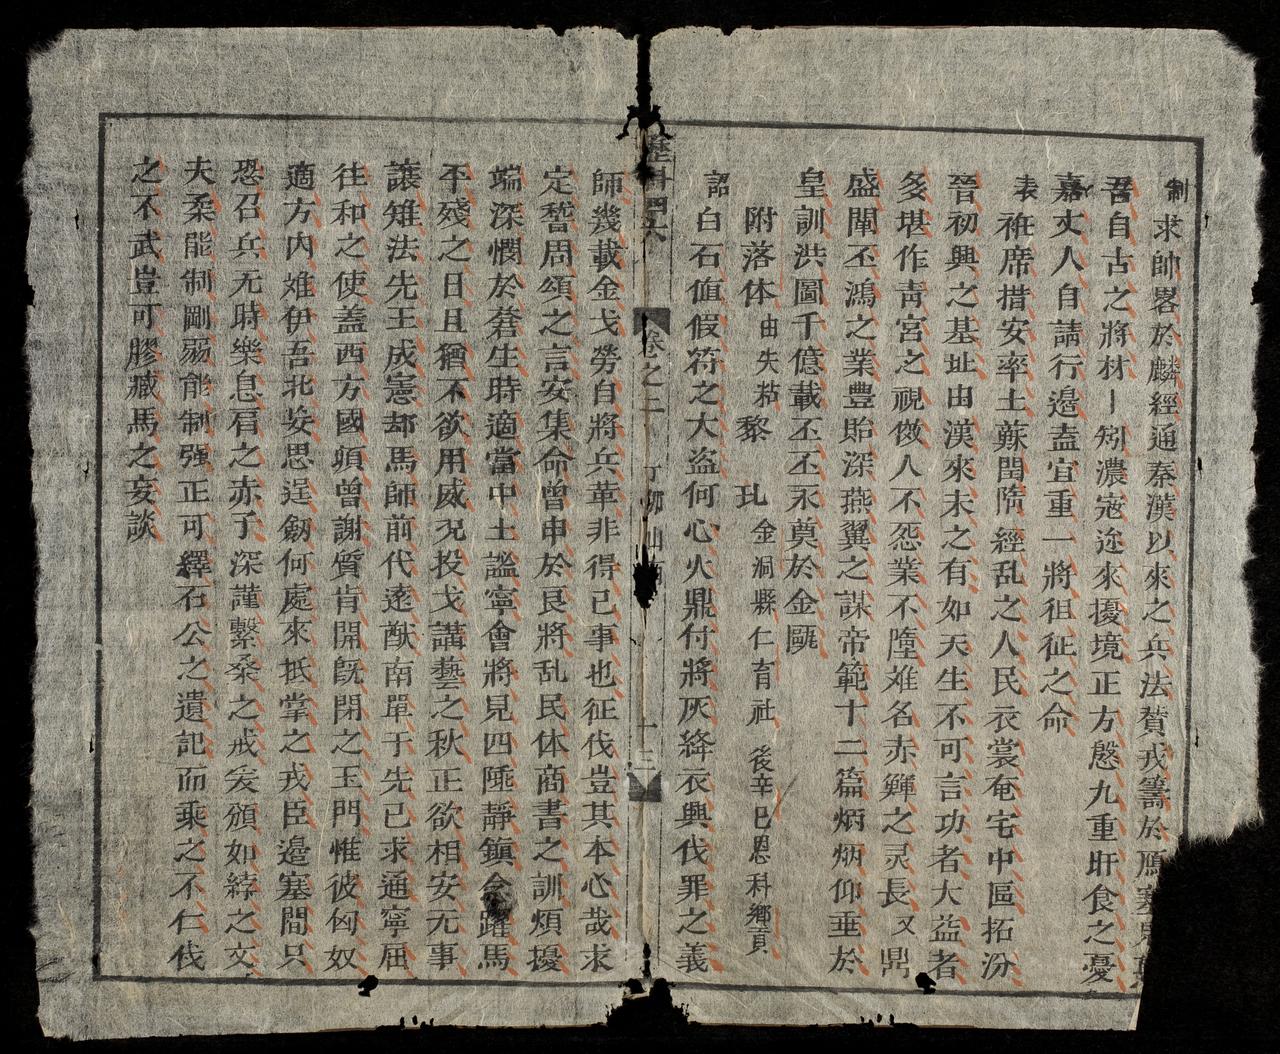 制求帥畧於麟經通秦漢以來之兵法賛戎籌於鴈塞
吾自古之將材丨矧濃宼迩來擾境正方慇九重旰食之憂
嘉丈人自請行邉盍宜重一將徂征之命
表袵席措安率土蘇閏隋經乱之人民衣裳奄宅中區拓汾
晉初興之基址由漢來未之有如天生不可言功者大益者
多堪作靑宮之視傚人不怨業不墮难名赤韠之灵長又鼎
盛闡丕鴻之業豊貽深燕翼之謀帝範十二篇炳炳仰垂於
皇訓洪圖千億載丕丕永奠於金甌
附落体由失粘黎 玭金洞縣仁育社後辛巳恩科鄉貢
詔白石値假符之大盗何心火鼎付將灰絳衣興伐罪之義
歷科四六 卷之二 十三
師幾載金戈勞自將兵革非得已事也征伐豈其本心哉求
定稽周頌之言安集命曾申於良將乱民体商書之訓煩擾
端深憫於蒼生時適當中土謐寧會將見四陲靜鎮念躍馬
平殘之日且猶不欲用威况投戈講藝之秋正欲相安无事
讓雉法先王成憲却馬師前代逺猷南單于先已求通寧屈
往和之使盖西方國頃曾謝質肯開旣閉之玉門惟彼匈奴
適方內难伊吾北妄思逞劔何處來抵掌之戎臣邉塞間只
恐召兵无時樂息肩之赤子深謹繫桑之戒爰頒如綍之文
夫柔能制剛弱能制强正可繹石公之遺記而乘之不仁伐
之不武豈可膠臧馬之妄談